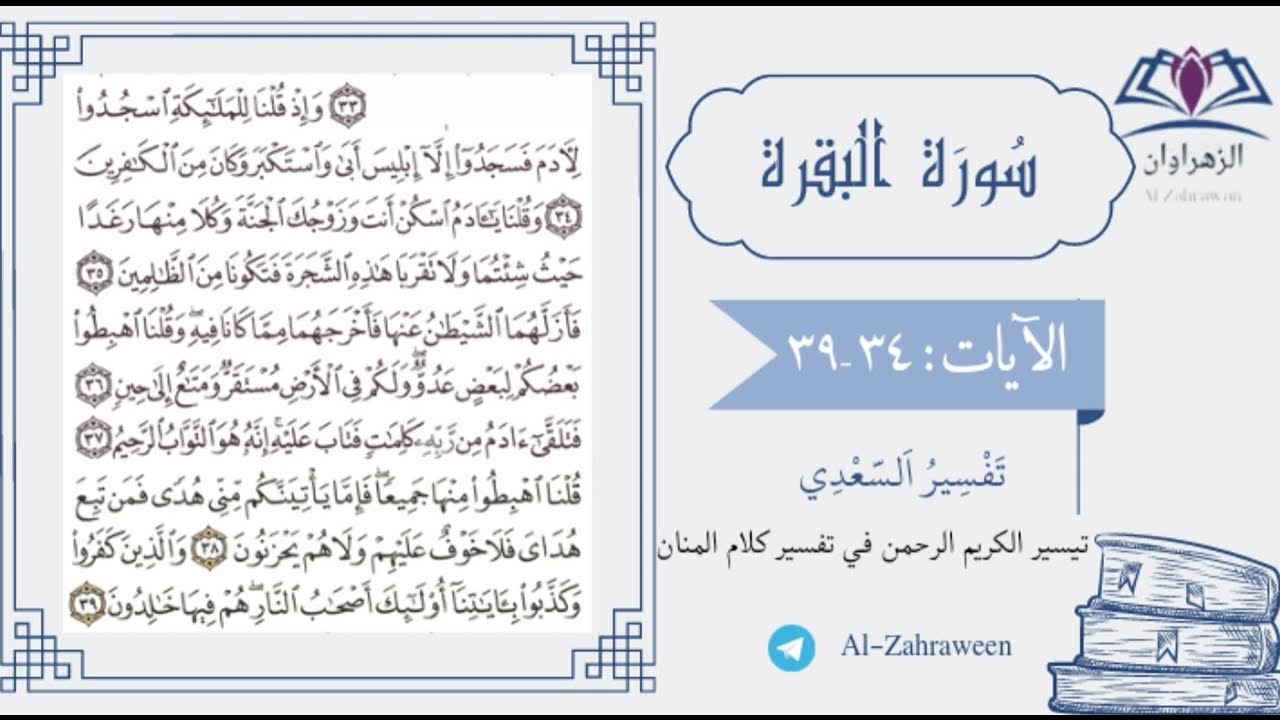 ﴿٣٣﴾ وَإِذْ قُلْنَا لِلْمَلَٰٓئِكَةِ ٱسْجُدُوا۟
لِءَادَمَ فَسَجَدُوٓا۟ إِلَّآ إِبْلِيسَ أَبَىٰ وَٱسْتَكْبَرَ وَكَانَ مِنَ ٱلْكَٰفِرِينَ
﴿٣٤﴾ وَقُلْنَا يَٰٓـَٔادَمُ ٱسْكُنْ أَنتَ وَزَوْجُكَ ٱلْجَنَّةَ وَكُلَا مِنْهَا رَغَدًا
حَيْثُ شِئْتُمَا وَلَا تَقْرَبَا هَٰذِهِ ٱلشَّجَرَةَ فَتَكُونَا مِنَ ٱلظَّٰلِمِينَ ﴿٣٥﴾
فَأَزَلَّهُمَا ٱلشَّيْطَٰنُ عَنْهَا فَأَخْرَجَهُمَا مِمَّا كَانَا فِيهِ ۖ وَقُلْنَا ٱهْبِطُوا۟
بَعْضُكُمْ لِبَعْضٍ عَدُوٌّ ۖ وَلَكُمْ فِى ٱلْأَرْضِ مُسْتَقَرٌّ وَمَتَٰعٌ إِلَىٰ حِينٍ ﴿٣٦﴾
فَتَلَقَّىٰٓ ءَادَمُ مِن رَّبِّهِۦ كَلِمَٰتٍ فَتَابَ عَلَيْهِ ۚ إِنَّهُۥ هُوَ ٱلتَّوَّابُ ٱلرَّحِيمُ ﴿٣٧﴾
قُلْنَا ٱهْبِطُوا۟ مِنْهَا جَمِيعًا ۖ فَإِمَّا يَأْتِيَنَّكُم مِّنِّى هُدًى فَمَن تَبِعَ
هُدَاىَ فَلَا خَوْفٌ عَلَيْهِمْ وَلَا هُمْ يَحْزَنُونَ ﴿٣٨﴾ وَٱلَّذِينَ كَفَرُوا۟
وَكَذَّبُوا۟ بِـَٔايَٰتِنَآ أُو۟لَٰٓئِكَ أَصْحَٰبُ ٱلنَّارِ ۖ هُمْ فِيهَا خَٰلِدُونَ ﴿٣٩﴾
الزهراوان
Al Zahrawan
سُورَة البقرة
الآيات: ٣٤-٣٩
تَفْسِيرُ اَلسّعْدِي
تيسير الكريم الرحمن في تفسير كلام المنان
Al-Zahraween